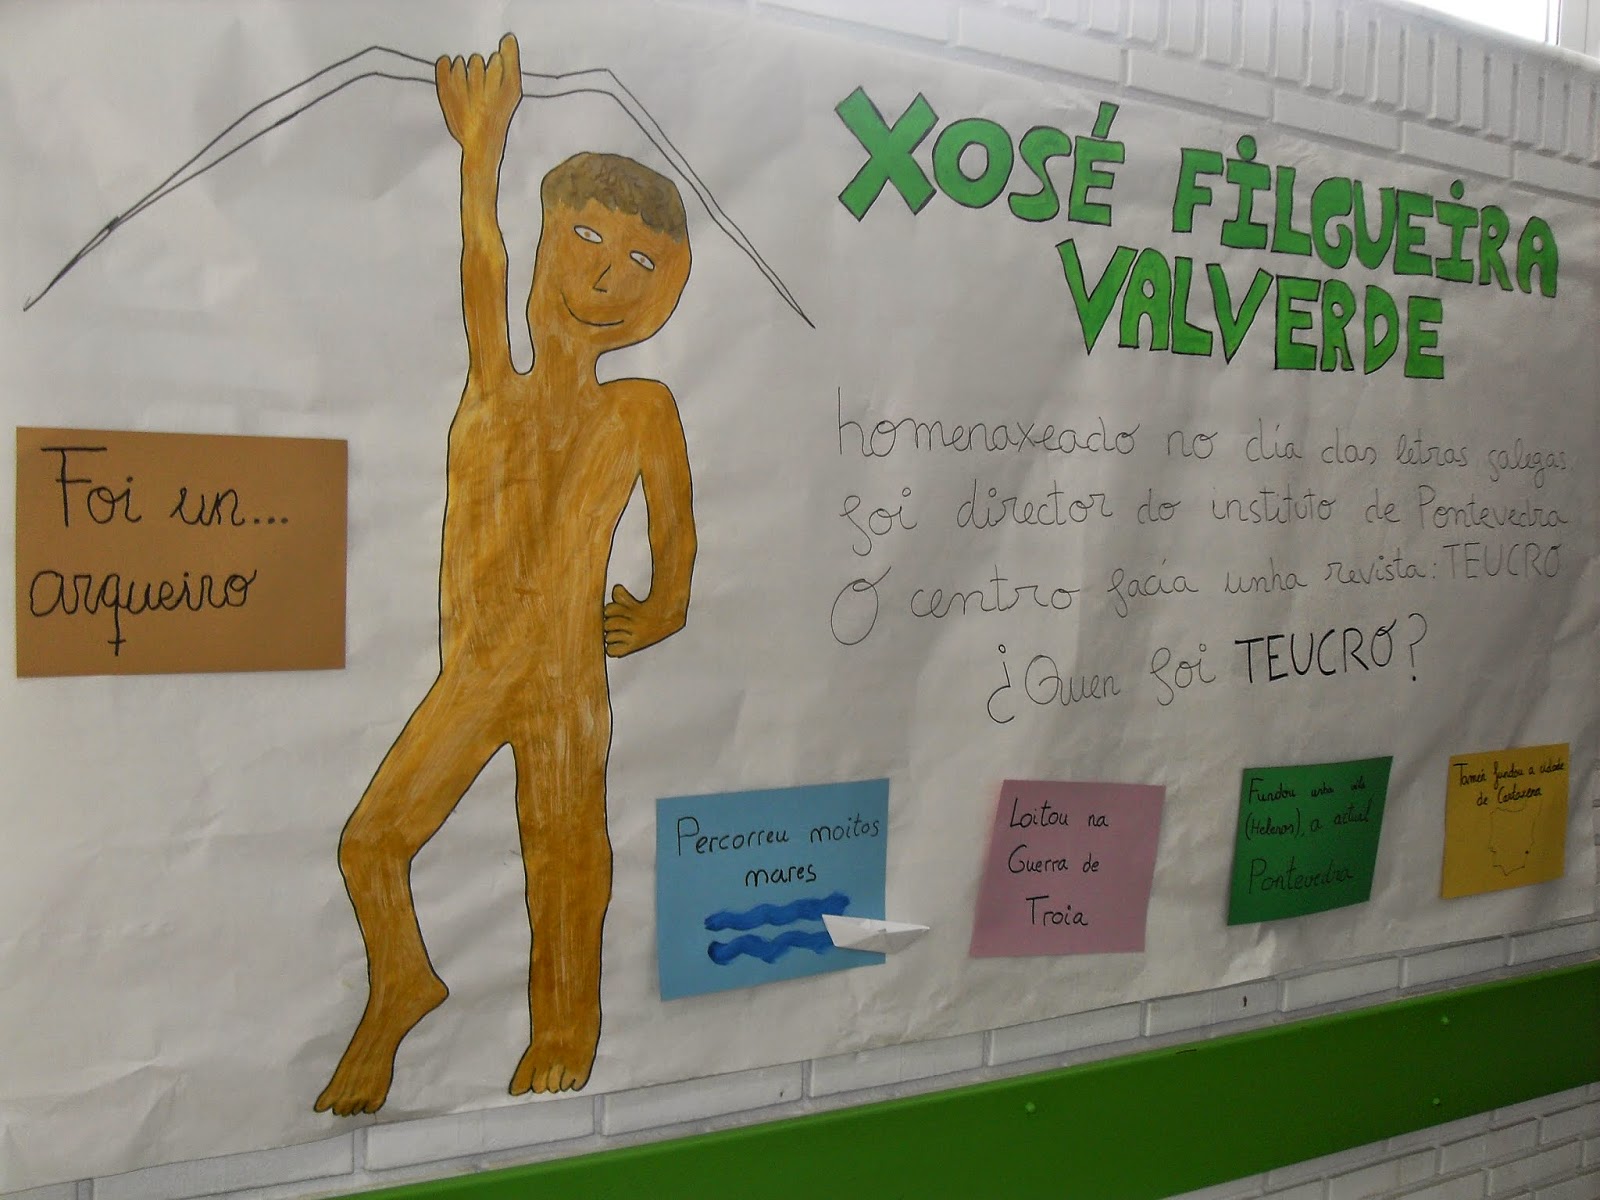 XOSÉ FILGUEIRA
VALVERDE
homenaxeado no día das letras galegas
foi director do instituto de Pontevedra
O centro facía unha revista: TEUCRO
¿Quen foi TEUCRO?
Foi un...
arqueiro
Percorreu moitos
mares
Loitou na
Guerra de
Troia
Fundou unha vila
(Helenos), a actual
Pontevedra
Tamén fundou a cidade
de Cartaxena